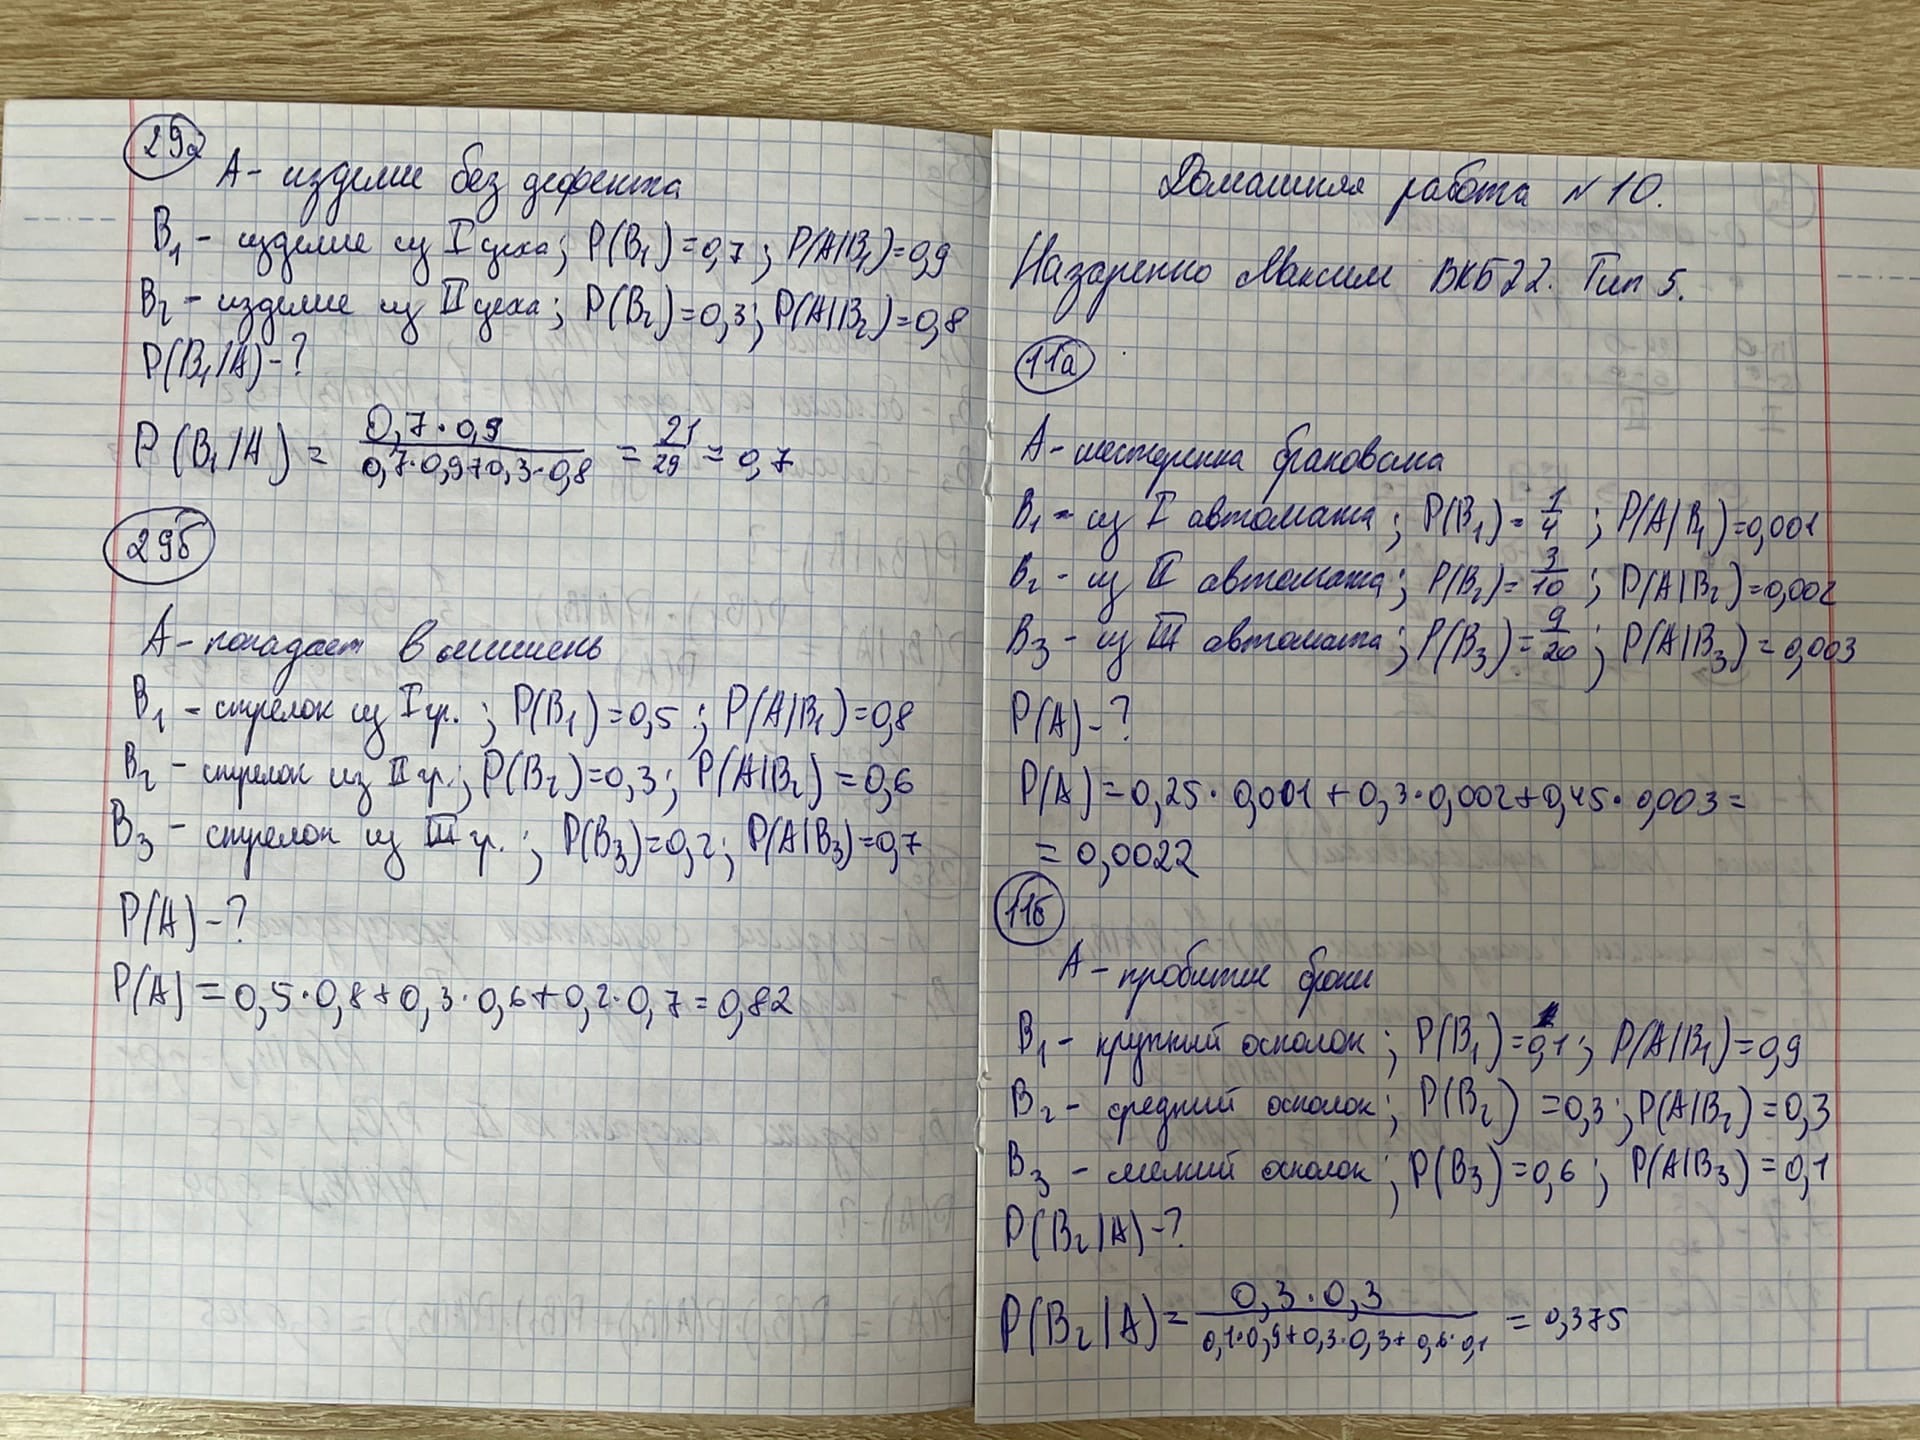 29a
A - изделие без дефекта
B1 - изделие из I цеха; P(B1)=0,7; P(A|B1)=0,9
B2 - изделие из II цеха; P(B2)=0,3; P(A|B2)=0,8
P(B1/A)-?
P(B1/A) = 0,7·0,9 / 0,7·0,9+0,3·0,8 = 21/29 = 0,7
29б
A - попадает в мишень
B1 - стрелок из I гр.; P(B1)=0,5; P(A|B1)=0,8
B2 - стрелок из II гр.; P(B2)=0,3; P(A|B2)=0,6
B3 - стрелок из III гр.; P(B3)=0,2; P(A|B3)=0,7
P(A)-?
P(A)=0,5·0,8+0,3·0,6+0,2·0,7=0,82
Домашняя работа №10.
Назаренко Максим ВКБ22. Тип 5.
11a
A - шестеренка бракована
B1 - из I автомата; P(B1)=1/4; P(A|B1)=0,001
B2 - из II автомата; P(B2)=3/10; P(A|B2)=0,002
B3 - из III автомата; P(B3)=9/20; P(A|B3)=0,003
P(A)-?
P(A)=0,25·0,001+0,3·0,002+0,45·0,003=
=0,0022
11б
A - пробитие брони
B1 - крупный осколок; P(B1)=0,1; P(A|B1)=0,9
B2 - средний осколок; P(B2)=0,3; P(A|B2)=0,3
B3 - мелкий осколок; P(B3)=0,6; P(A|B3)=0,1
P(B2|A)-?
P(B2|A)= 0,3·0,3 / 0,1·0,9+0,3·0,3+0,6·0,1 = 0,375